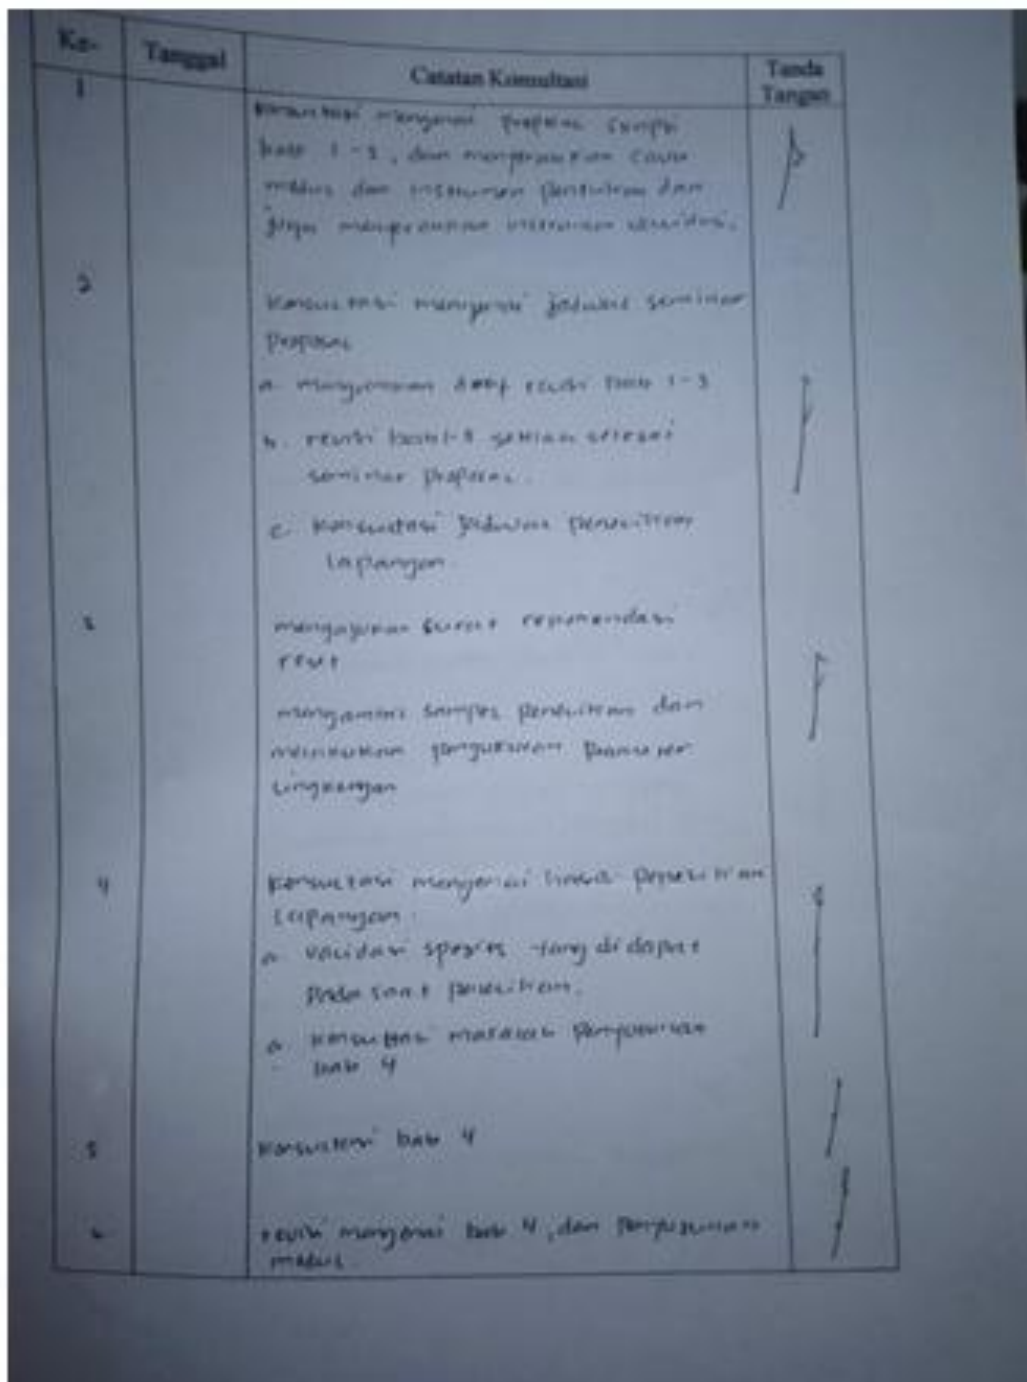 Ke-
Tanggal
Catatan Konsultasi
Tanda
Tangan
1
Konsultasi mengenai proposal skripsi
bab 1-3, dan cover
modul dan instrumen penelitian dan
juga instrumen validasi.
2
Konsultasi mengenai jadwal seminar
proposal
a. draf revisi bab 1-3
b. revisi bab 1-3 setelah selesai
seminar proposal.
c. Konsultasi jadwal penelitian
lapangan
3
mengajukan surat rekomendasi
riset
mengambil sampel penelitian dan
melakukan pengukuran parameter
lingkungan
4
Konsultasi mengenai hasil penelitian
lapangan.
a. validasi spesies yang didapat
pada saat penelitian.
a. konsultasi masalah penyusunan
bab 4
5
Konsultasi bab 4
6
revisi mengenai bab 4, dan penyusunan
modul.